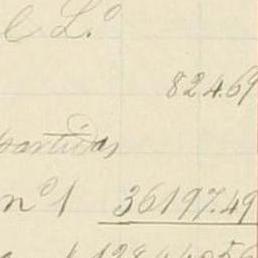 C L.º
824.69
partidas
nº 1 36197.49